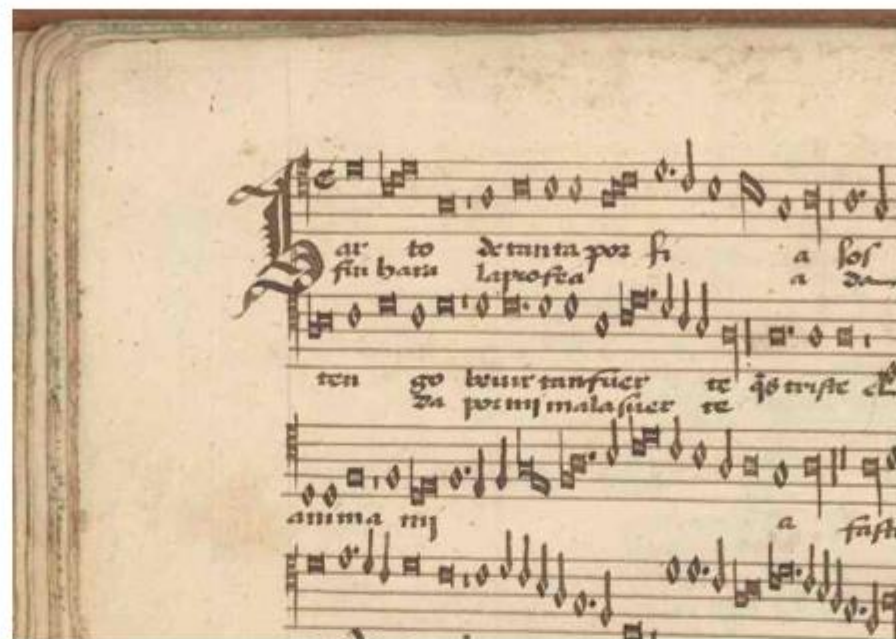 Harto de tanta por fi a los
fin hara la profea a da
ten go beuir tan fuer te q̃s triste el
da por mi mala suer te
anima mi a fast